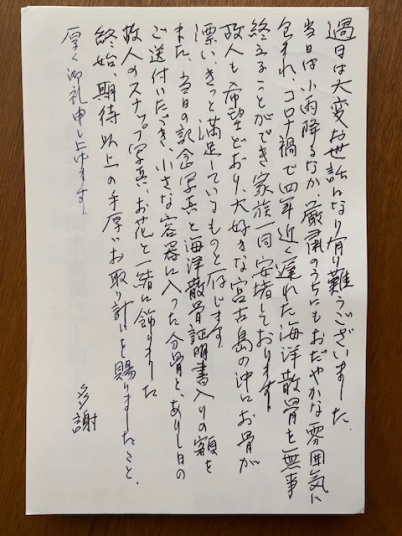 過日は大変お世話になり有り難うございました。
当日は小雨降るなか、厳粛のうちにもおだやかな雰囲気に
包まれ、コロナ禍で四年近く遅れた海洋散骨を無事
終えることができ家族一同安堵しております。
故人も希望どおり、大好きな宮古島の沖にお骨が
漂い、きっと満足しているものと存じます。
また、当日の記念写真と海洋散骨証明書入りの額を
ご送付いただき、小さな容器に入った分骨と、ありし日の
故人のスナップ写真、お花と一緒に飾りました
終始、期待以上の手厚いお取り計いを賜りましたこと、
厚く御礼申し上げます。
多謝